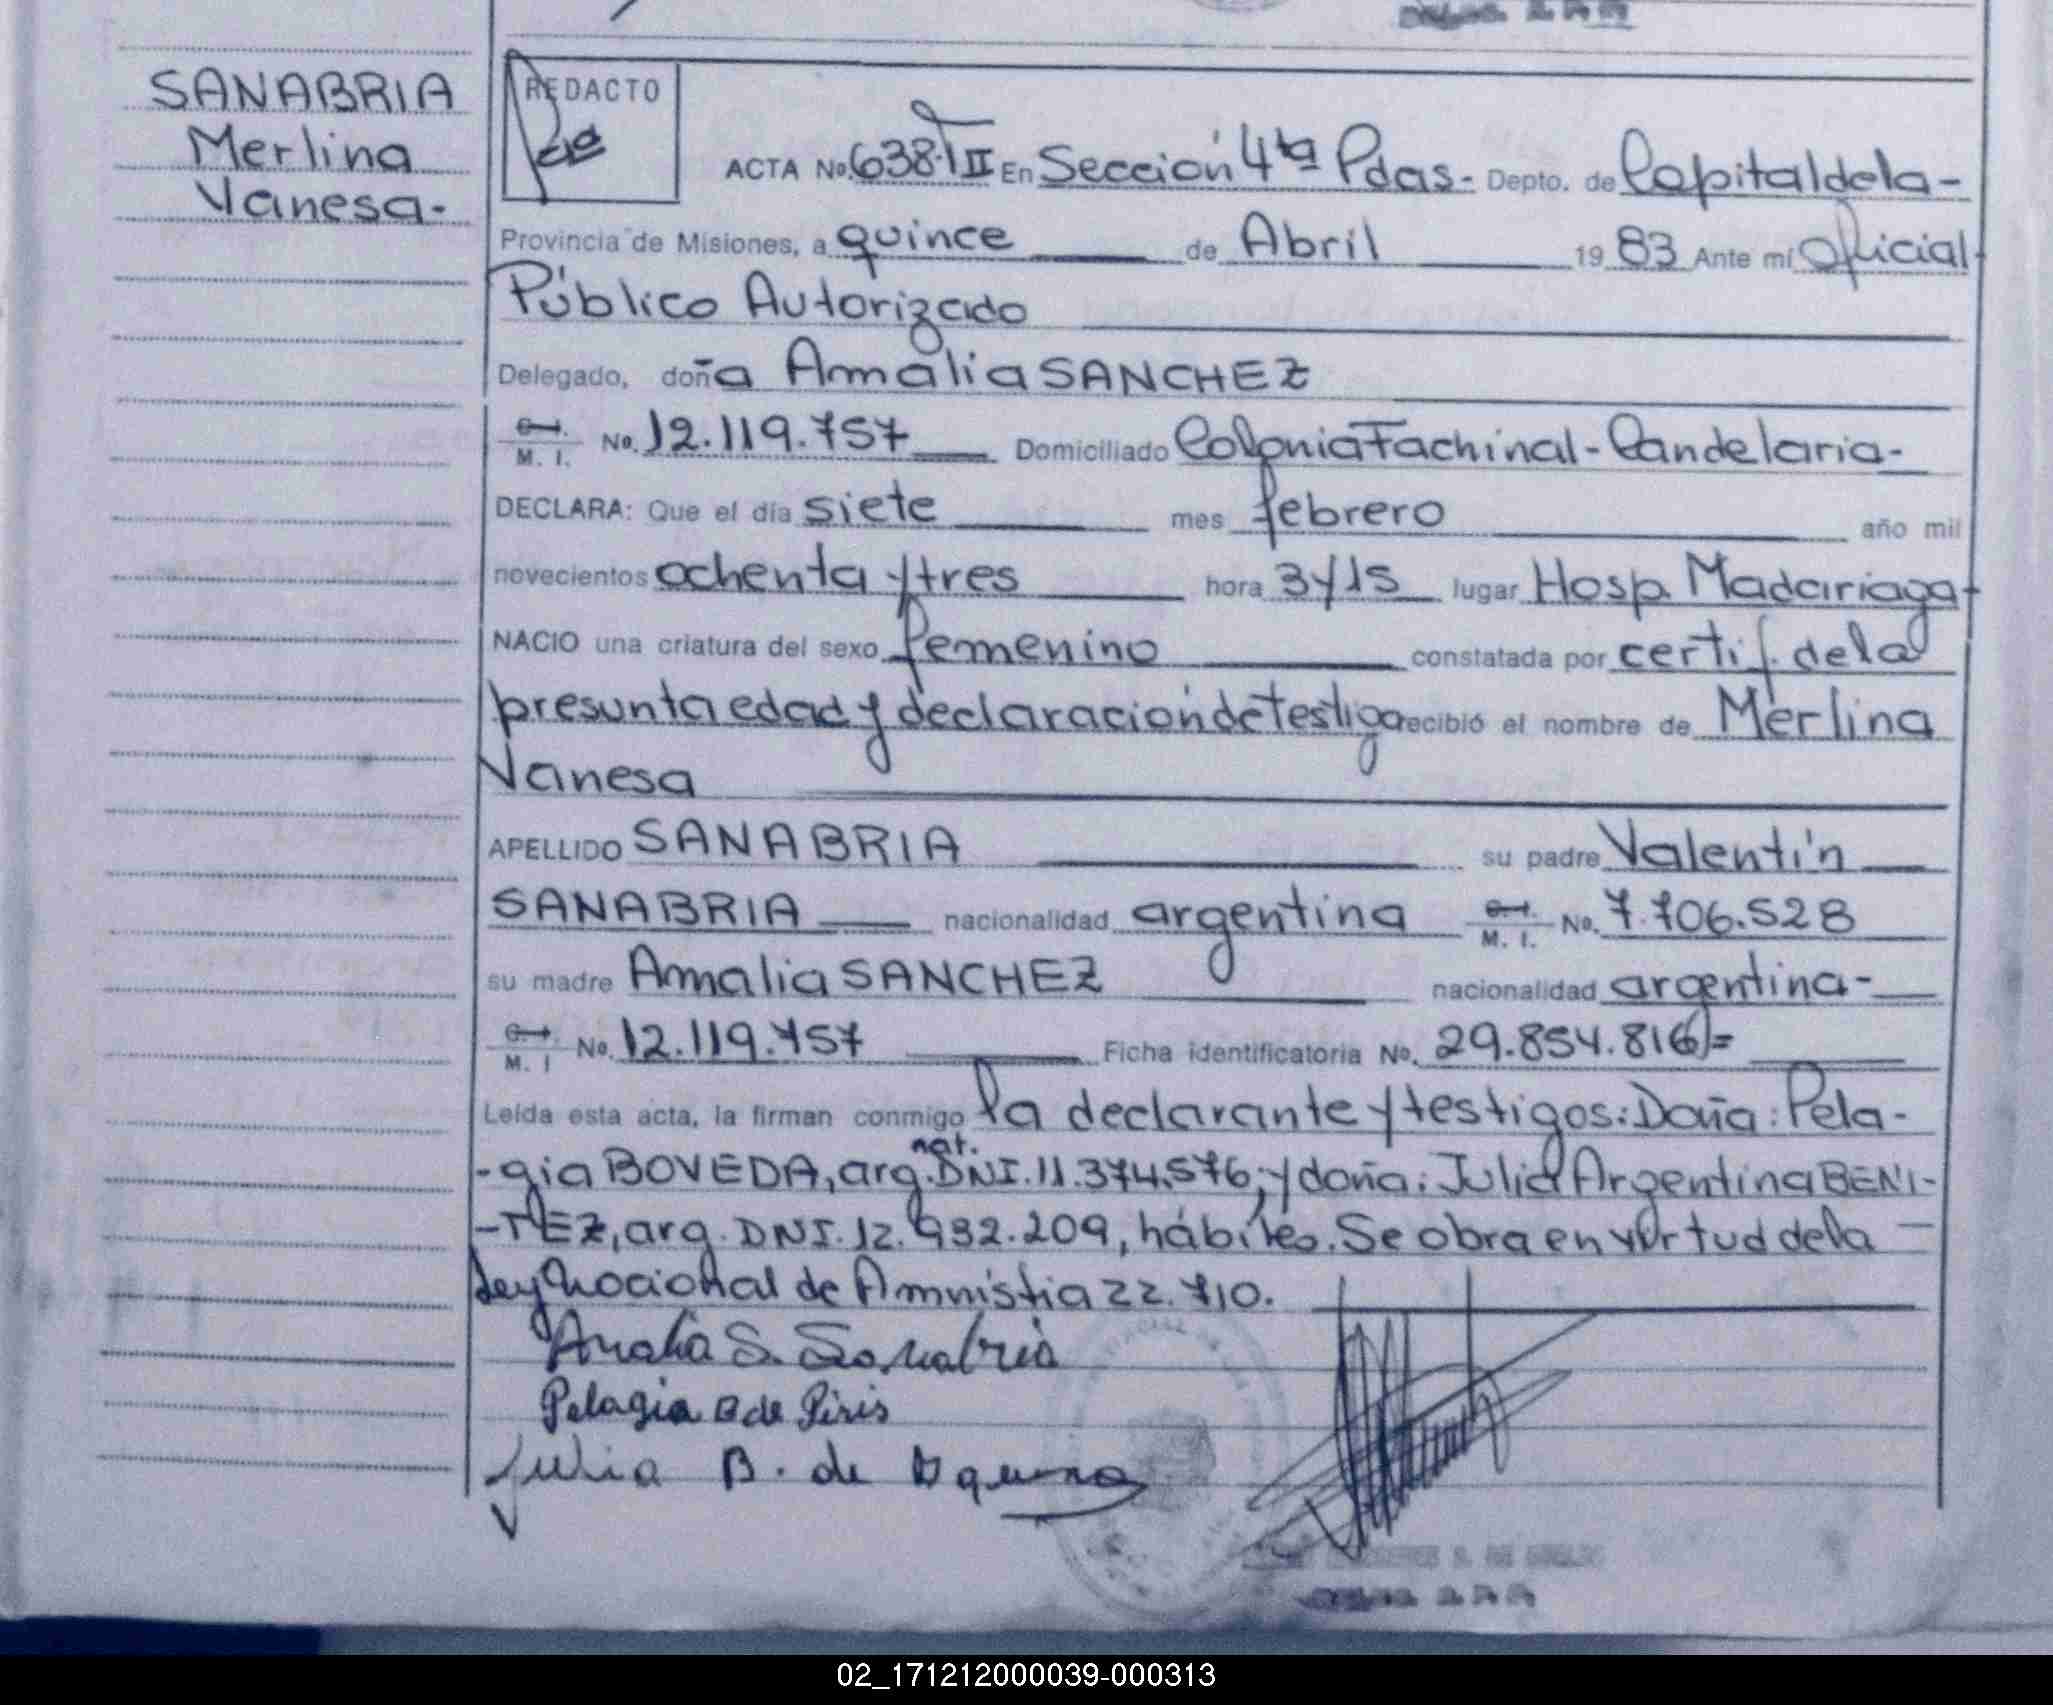 SANABRIA
Merlina
Vanesa.-
REDACTO
ACTA No. 638-TII En Sección 4ta Pdas.- Depto. de Capital de la-
Provincia de Misiones, a quince de Abril 1983 Ante mí Oficial
Público Autorizado
Delegado, doña Amalia SANCHEZ
C.I. M. I. No. 12.119.757 Domiciliado Colonia Fachinal-Candelaria-
DECLARA: Que el día siete mes febrero año mil
novecientos ochenta y tres hora 3y15 lugar Hosp. Madariaga
NACIO una criatura del sexo femenino constatada por certif. de la
presunta edad y declaración de testigo recibió el nombre de Merlina
Vanesa
APELLIDO SANABRIA su padre Valentín
SANABRIA nacionalidad argentina C.I. M. I. No. 7.706.528
su madre Amalia SANCHEZ nacionalidad argentina-
C.I. M. I No. 12.119.757 Ficha identificatoria No. 29.854.816)=
Leída esta acta, la firman conmigo la declarante y testigos: Doña: Pela-
-gia BOVEDA, arg. nat. DNI. 11.374.576, y doña: Julia Argentina BENI-
-TEZ, arg. DNI. 12.932.209, hábiles. Se obra en virtud de la
Ley Nacional de Amnistia 22.710.
Amalia S. Sanabria
Pelagia B de Piris
Julia B. de
02_171212000039-000313